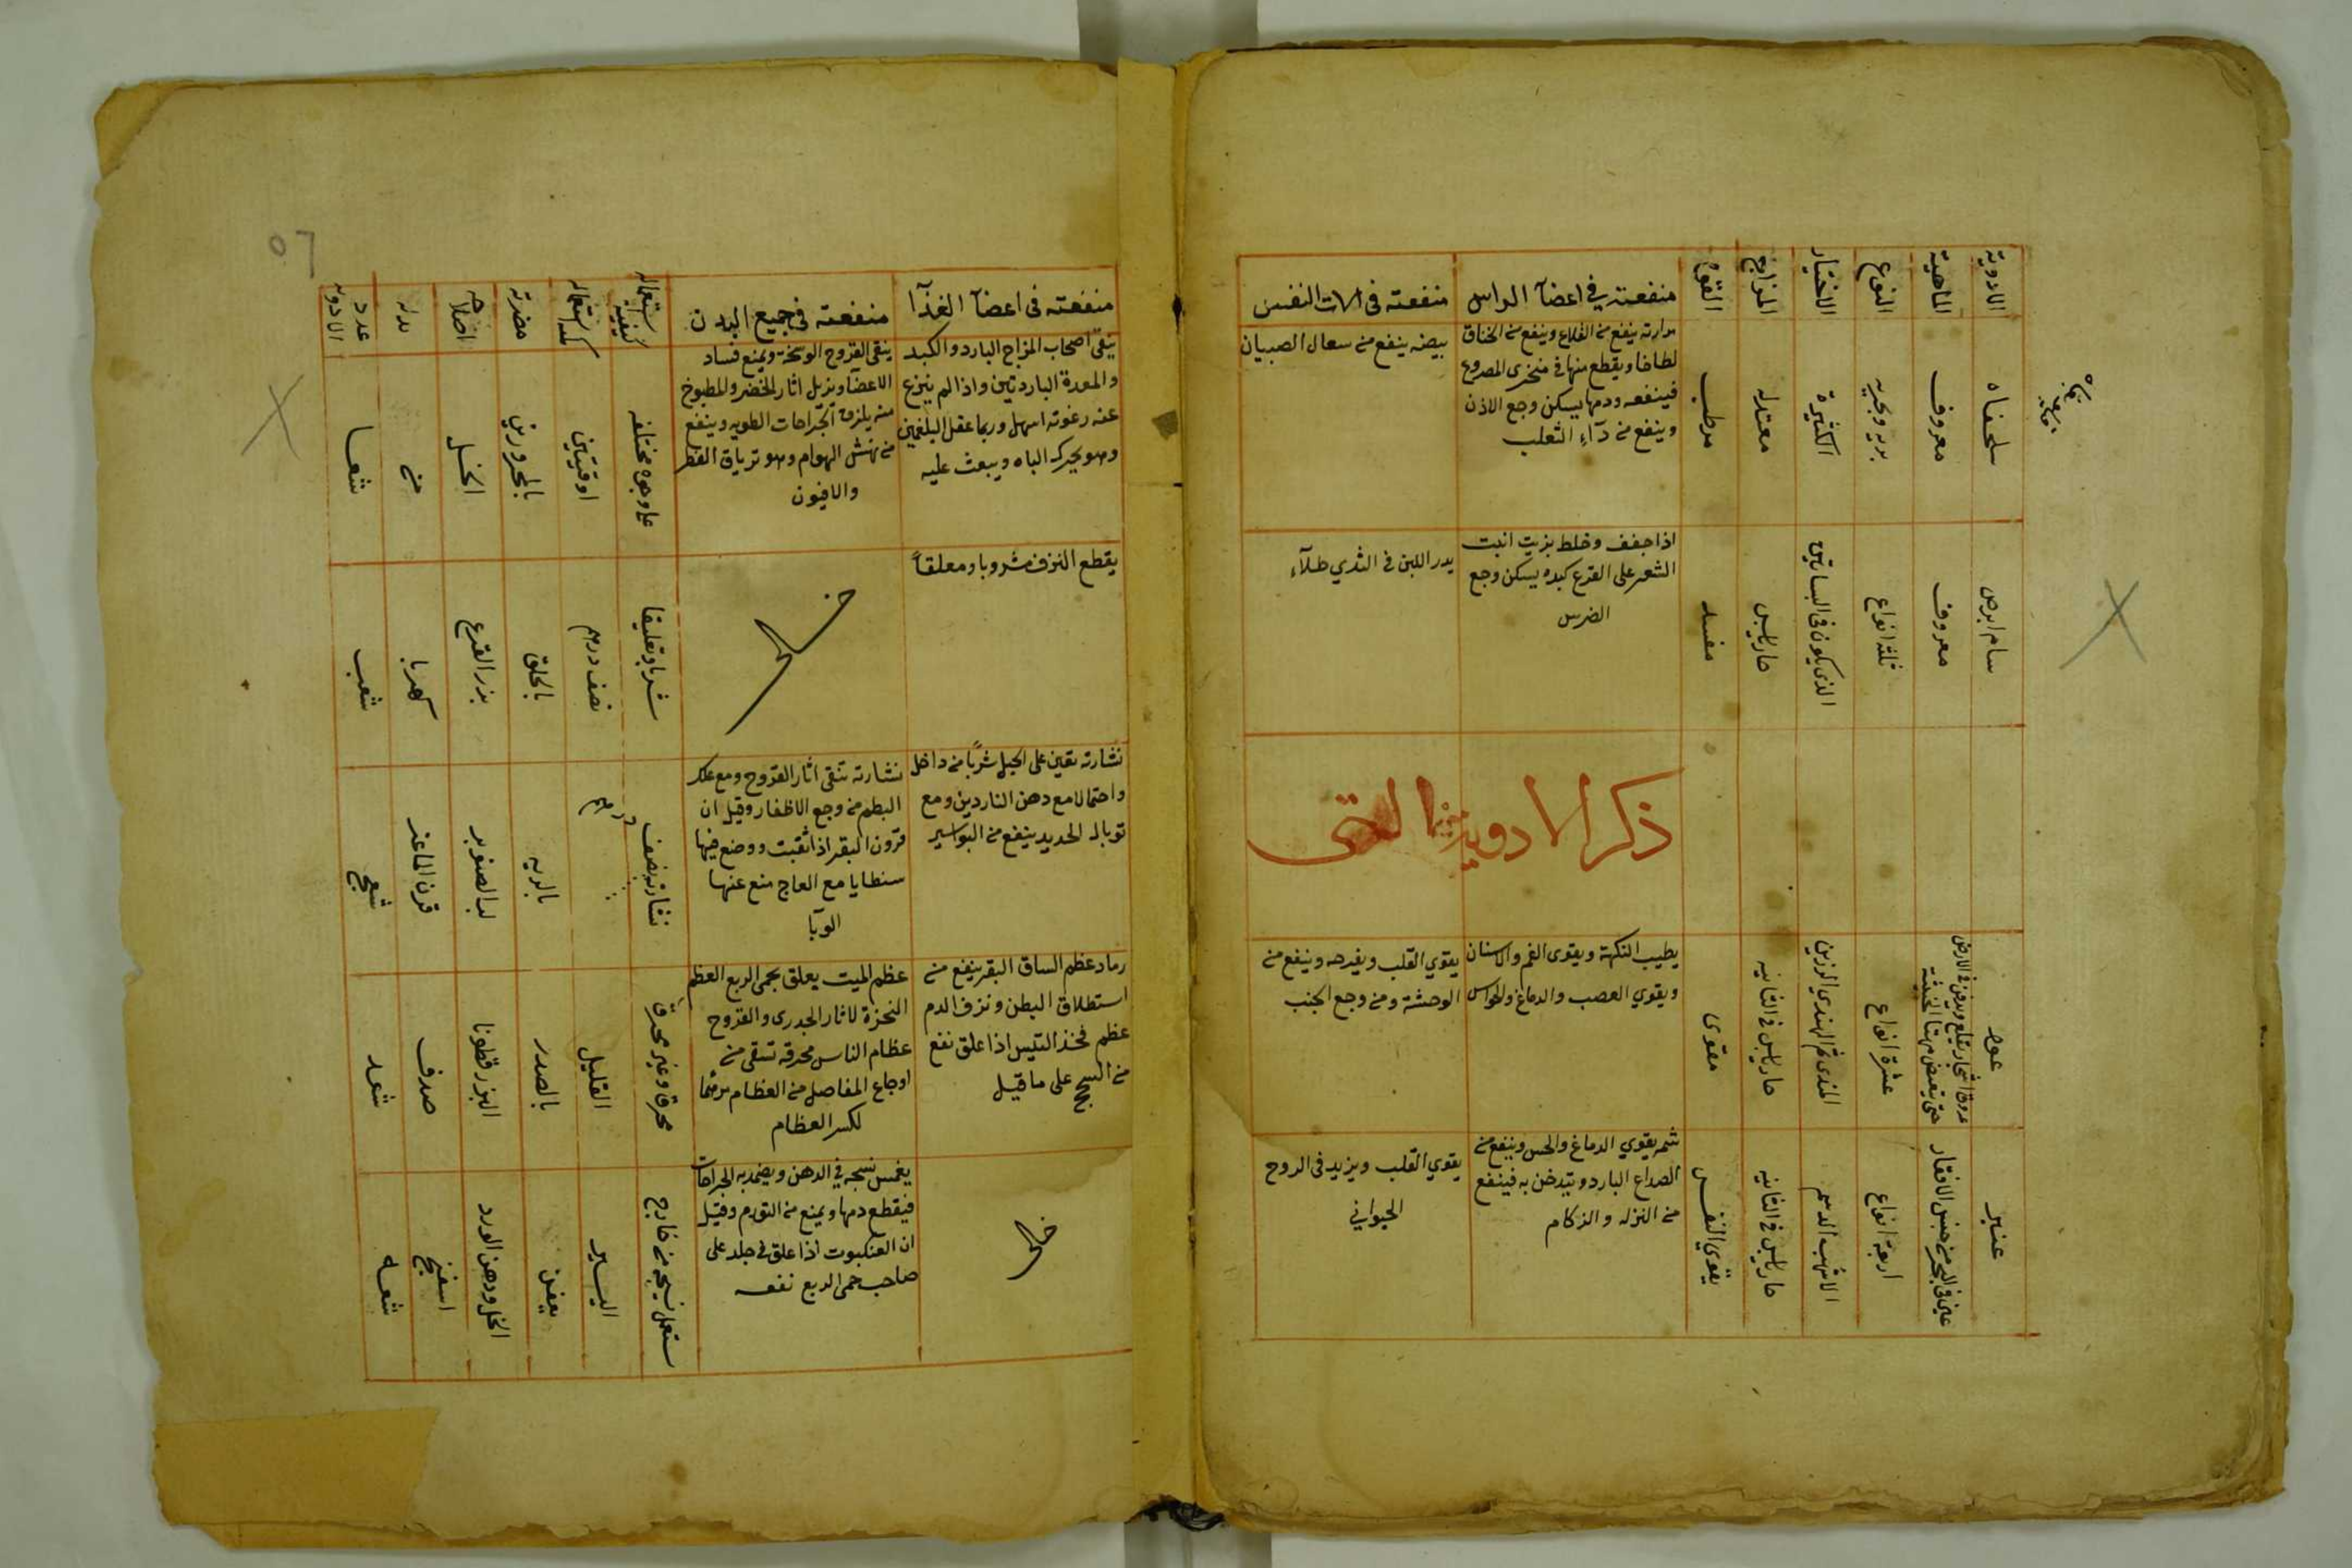 الادوية
الماهية
النوع
الاختيار
المزاج
القوة
منفعته في اعضآ الراس
منفعته فى الات النفس
سلحفاه
معروف
بريه وبحريه
الكثيرة
معتدله
مرطب
مرارته ينفع من القلاع وينفع من الخناق
لطاخا ويقطع منها فى منخرى المصروع
فينفعه ودمها يسكن وجع الاذن
وينفع من دآء الثعلب
بيضه ينفع من سعال الصبيان
سام ابرص
معروف
ثلثة انواع
الذى يكون فى البساتين
حار يابس
مفسد
اذا جفف وخلط بزيت انبت
الشعر على القرع كبده يسكن وجع
الضرس
يدر اللبن فى الثدي طلآء
ذكر الادوية التى
عود
عروق اشجار تقلع وتدفن فى الارض
حتى تتعفن منها الخشبية
عشرة انواع
المندى ثم الهندي الرزين
حار يابس فى الثانيه
مقوى
يطيب النكهة ويقوى الفم والاسنان
ويقوي العصب والدماغ والحواس
يقوي القلب ويفرحه وينفع من
الوحشة ومن وجع الجنب
عنبر
عين فى البحر من جنس الاقفار
اربعة انواع
الاشهب الدسم
حار يابس فى الثانيه
يقوي النفس
شمه يقوي الدماغ والحس وينفع من
الصداع البارد ويتدخن به فينفع
من النزله والزكام
يقوي القلب ويزيد فى الروح
الحيواني
٥٦
منفعته فى اعضآ الغذآ
منفعته فى جميع البدن
كيفية استعماله
كمية استعماله
مضرته
اصلاحه
بدله
عدد الادويه
ينقى اصحاب المزاج البارد والكبد
والمعدة الباردتين واذا لم ينزع
عنه رغوته اسهل وربما عقل البلغمين
وهو يحرك الباه ويبعث عليه
ينقى القروح الوسخة ويمنع فساد
الاعضآ ويزيل اثار الخضر والمطبوخ
منه يلزق الجراحات الطويه وينفع
من نهش الهوام وهو ترياق الفطر
والافيون
على وجوه مختلفه
اوقيتين
بالمحرورين
الخل
من
شعا
يقطع النزف مشروبا ومعلقاً
شربا وتعليقا
نصف درهم
بالحلق
بزر القرع
كهربا
شعب
نشارته تعين على الحبل شربًا من داخل
واحتمالا مع دهن الناردين ومع
توبال الحديد ينفع من البواسير
نشارته تنقى اثار القروح ومع علك
البطم من وجع الاظفار وقيل ان
قرون البقر اذا ثقبت ووضع فيها
سنطايا مع العاج منع عنها
الوبآ
نشارته نصف
درهم
بالريه
لب الصنوبر
قرن الماعز
شعج
رماد عظم الساق البقر ينفع من
استطلاق البطن ونزف الدم
عظم فخذ التيس اذا علق نفع
من السحج على ما قيل
عظم الميت يعلق بحمى الربع العظم
النخرة لاثار الجدرى والقروح
عظام الناس محرقه تسقى من
اوجاع المفاصل من العظام
لكسر العظام
محرقا وغير محرق
القليل
بالصدر
البزر قطونا
صدف
شعد
يغمس نسجه في الدهن ويضمد به الجراحات
فيقطع دمها ويمنع من التورم وقيل
ان العنكبوت اذا علق فى جلد على
صاحب حمى الربع نفعه
ستعمل نسيجه من خارج
اليسير
يعفن
الخل ودهن الورد
اسفنج
شعه